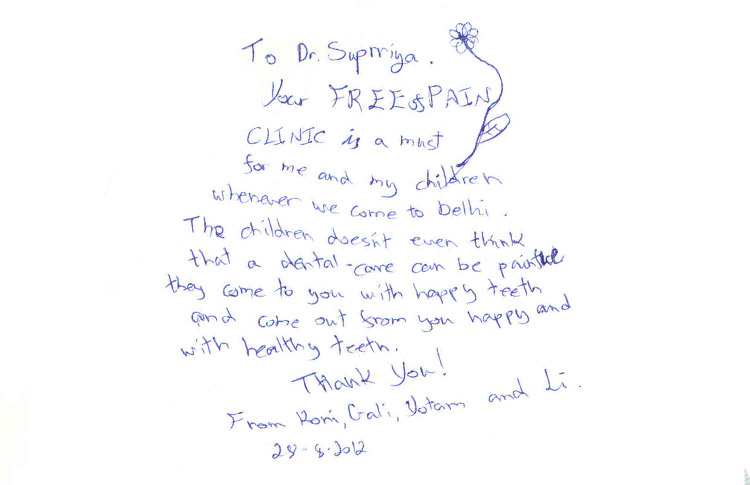 To Dr. Supriya.
Your FREE of PAIN
CLINIC is a must
for me and my children
whenever we come to Delhi.
The children doesn't even think
that a dental-care can be
they come to you with happy teeth
and come out from you happy and
with healthy teeth.
Thank You!
From Roni, Gali, Yotam and Li.
28-8-2012